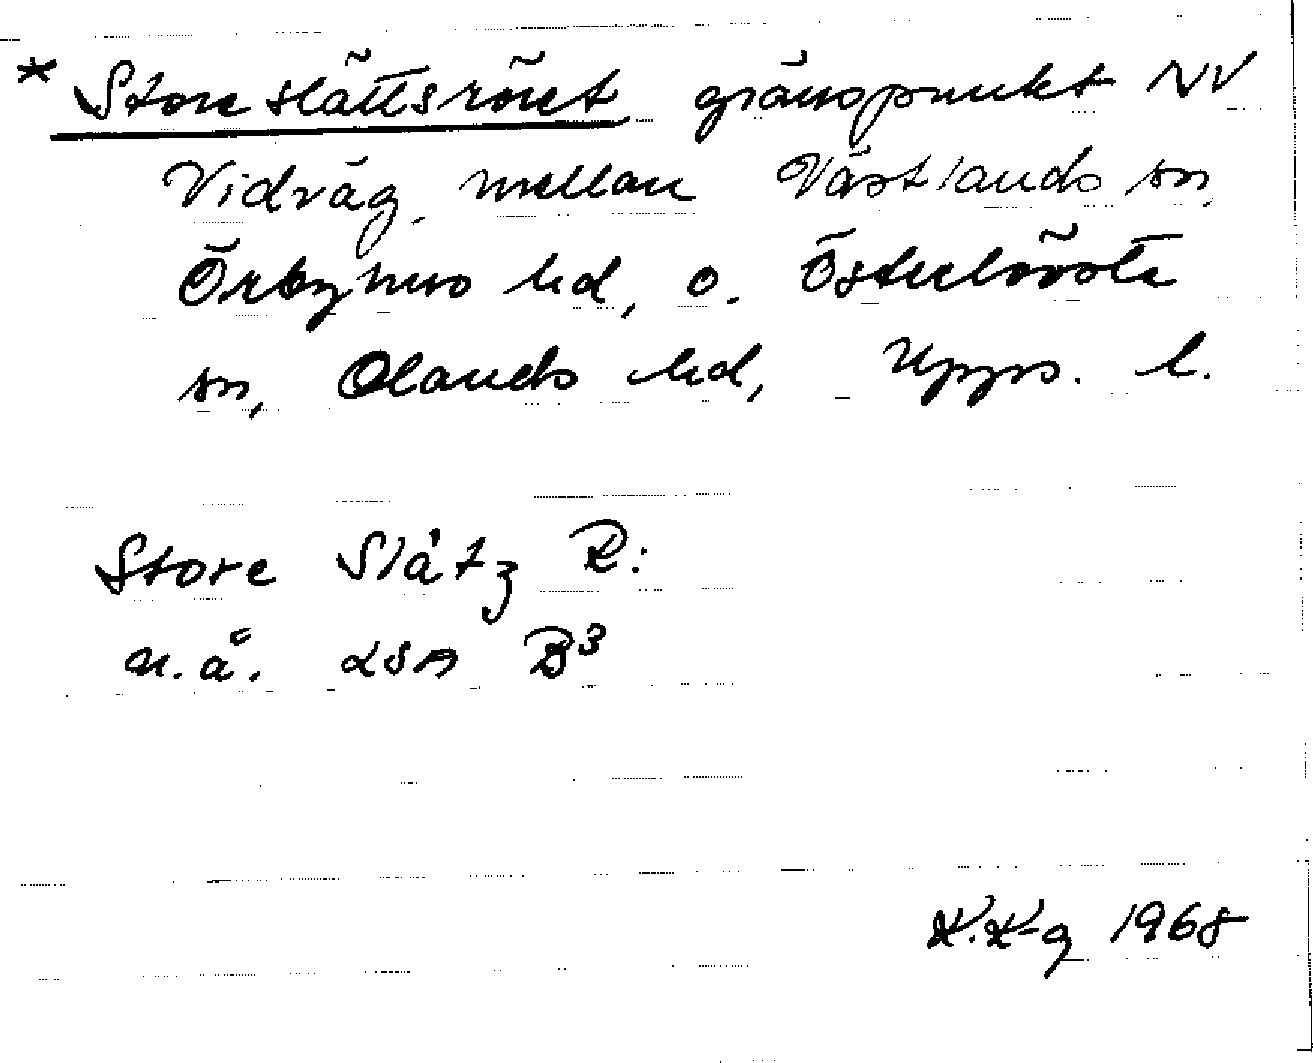 * Storeslättsröret gränspunkt NV
Vidväg, mellan Västlands sn,
Örbyhus hd, o. Österlövsta
sn, Olands hd, Upps. l.
Store Slåtz R:
n.ä. LSA B3
K.K-g 1968